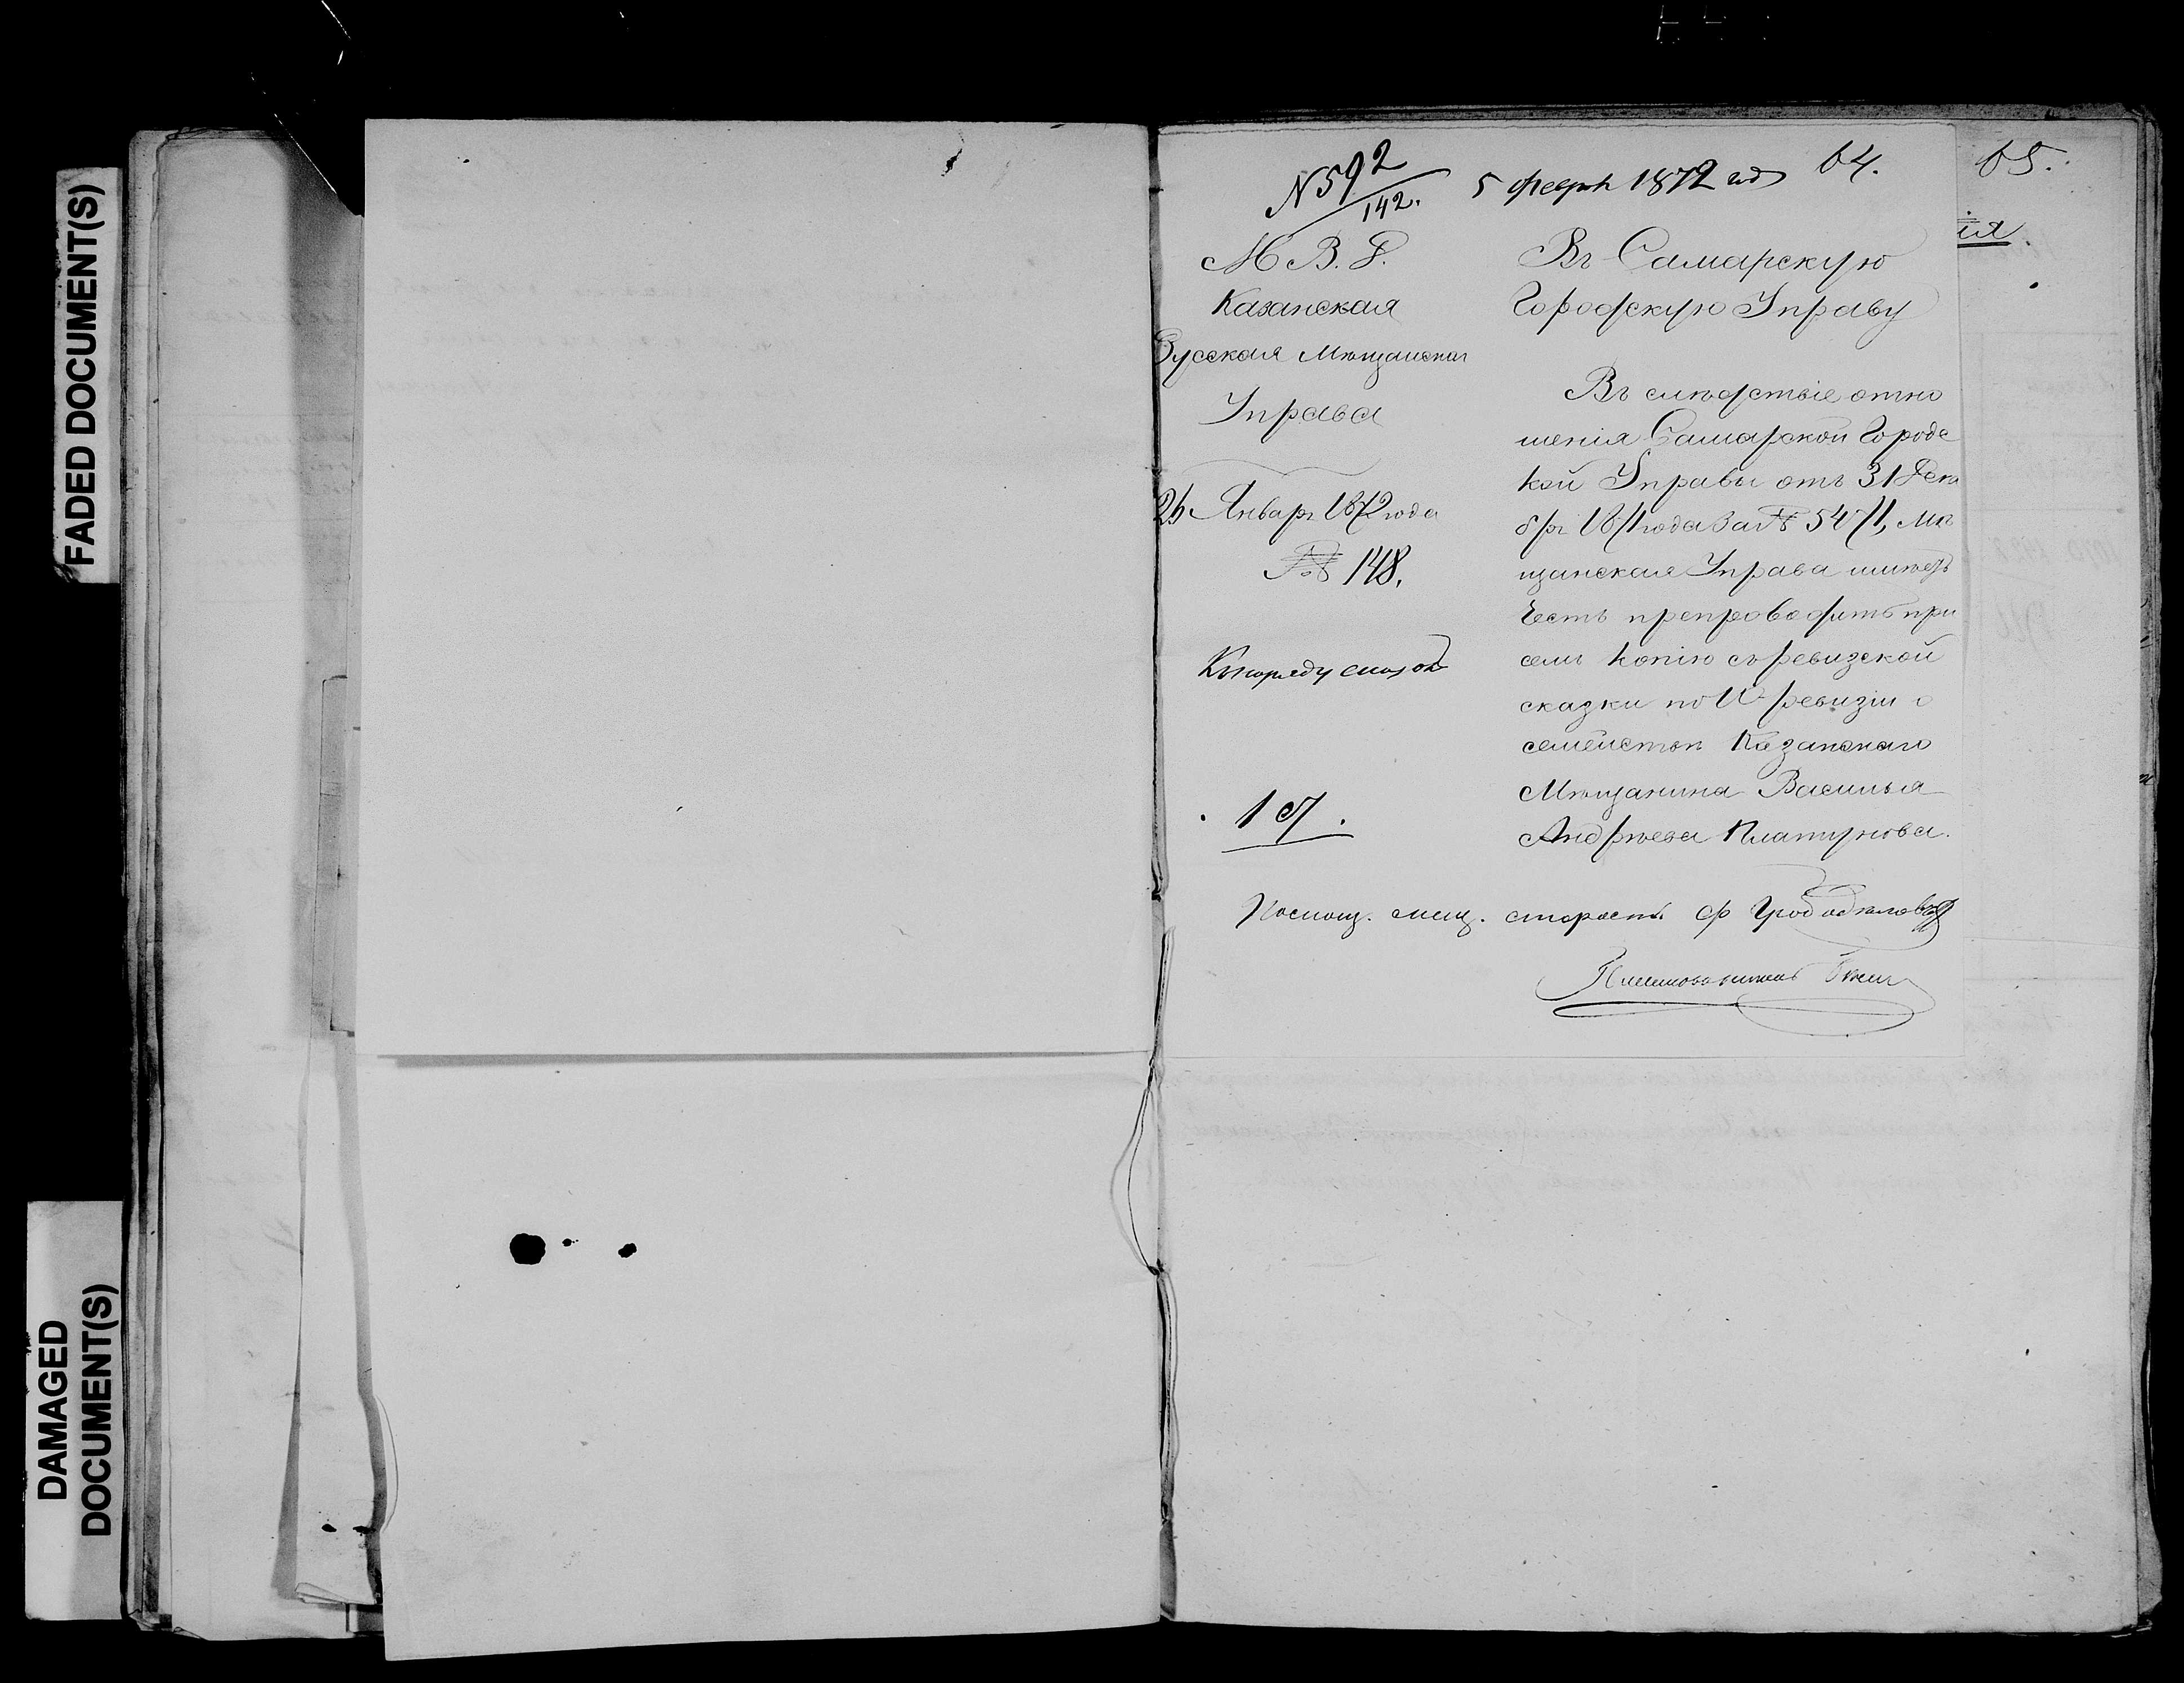 FADED DOCUMENT(S)
DAMAGED
DOCUMENT(S)
№ 592
142.
5 февр 1872 год
64.
65.
ія.
М В. Д.
Казанская
Русская Мѣщанская
Управа
Январ 1872 года
№ 148.
1 с/.
Въ Самарскую
Городскую Управу
Въ слѣдствіе отно
шенія Самарской Городс
кой Управы отъ 31 Дека
бря 1871 года за № 5471, Мѣ
щанская Управа имѣетъ
честь препроводить при
семъ копію съ ревизской
сказки по ревизіи о
семействѣ Казанскаго
Мѣщанина Василья
Андрѣева
Помощ. мещ. старосты